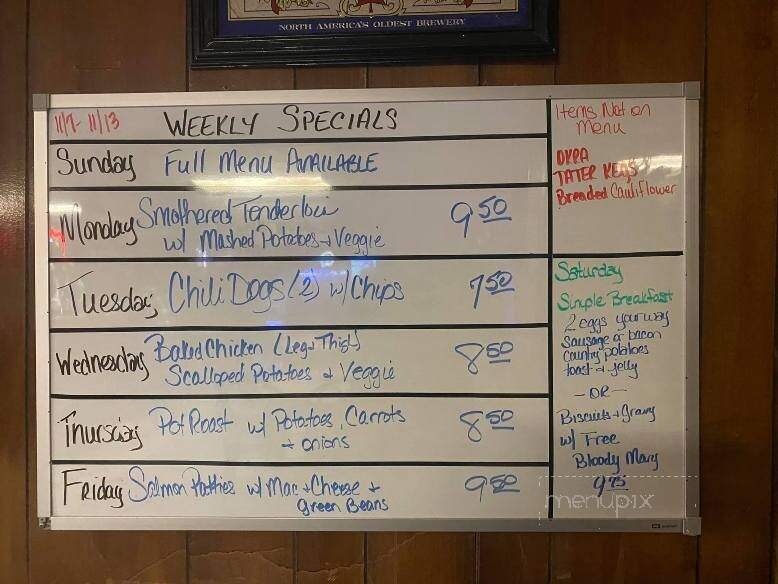 NORTH AMERICA'S OLDEST BREWERY
11/7 - 11/13 WEEKLY SPECIALS
Sunday Full Menu AVAILABLE
Monday Smothered Tenderloin
w/ Mashed Potatoes + Veggie 9 50
Tuesday Chili Dogs (2) w/ Chips 7 50
Wednesday Baked Chicken (Leg + Thigh)
Scalloped Potatoes + Veggie 8 50
Thursday Pot Roast w/ Potatoes, Carrots
+ onions 8 50
Friday Salmon Patties w/ Mac + Cheese +
green Beans 9 50
Items Not on
Menu
OKRA
TATER KEGS
Breaded Cauliflower
Saturday
Simple Breakfast
2 eggs your way
Sausage or bacon
Country potatoes
toast + jelly
- OR -
Biscuits + Gravy
w/ Free
Bloody Mary
9 75
menupix